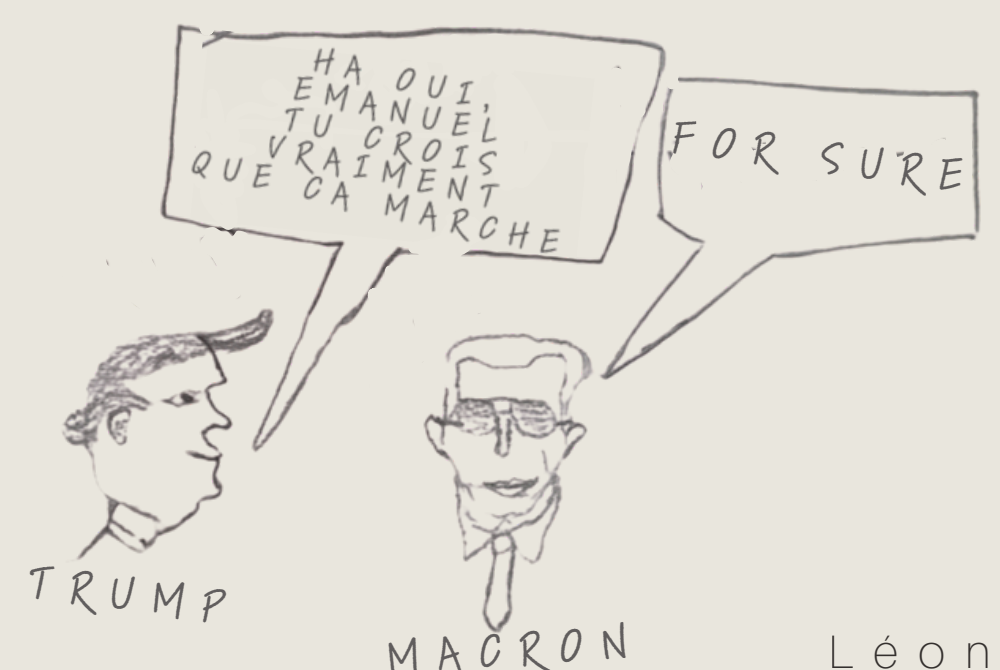 HA OUI,
EMANUEL
TU CROIS
VRAIMENT
QUE CA MARCHE
FOR SURE
TRUMP
MACRON
Léon